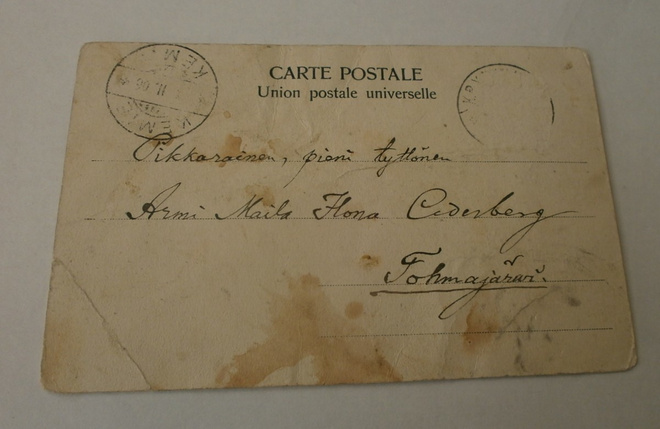 CARTE POSTALE
Union postale universelle
KEMI
KEMI
Pikkarainen, pieni tyttönen
Armi Maila Ilona Cederberg
Tohmajärvi.